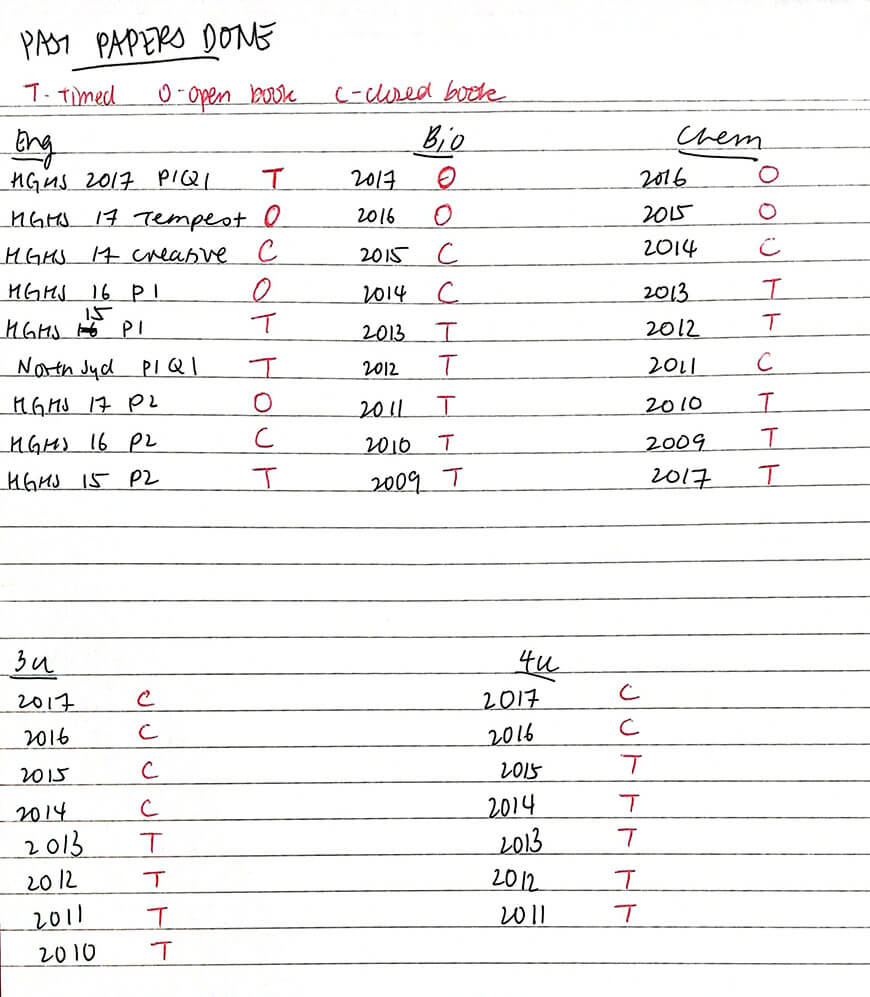 PAST PAPERS DONE
T-timed O-open book C-closed book
Eng Bio Chem
HGHS 2017 P1Q1 T 2017 O 2016 O
HGHS 17 Tempest O 2016 O 2015 O
HGHS 17 creative C 2015 C 2014 C
HGHS 16 P1 O 2014 C 2013 T
HGHS 15 P1 T 2013 T 2012 T
North Syd P1Q1 T 2012 T 2011 C
HGHS 17 P2 O 2011 T 2010 T
HGHS 16 P2 C 2010 T 2009 T
HGHS 15 P2 T 2009 T 2017 T
3u 4u
2017 C 2017 C
2016 C 2016 C
2015 C 2015 T
2014 C 2014 T
2013 T 2013 T
2012 T 2012 T
2011 T 2011 T
2010 T